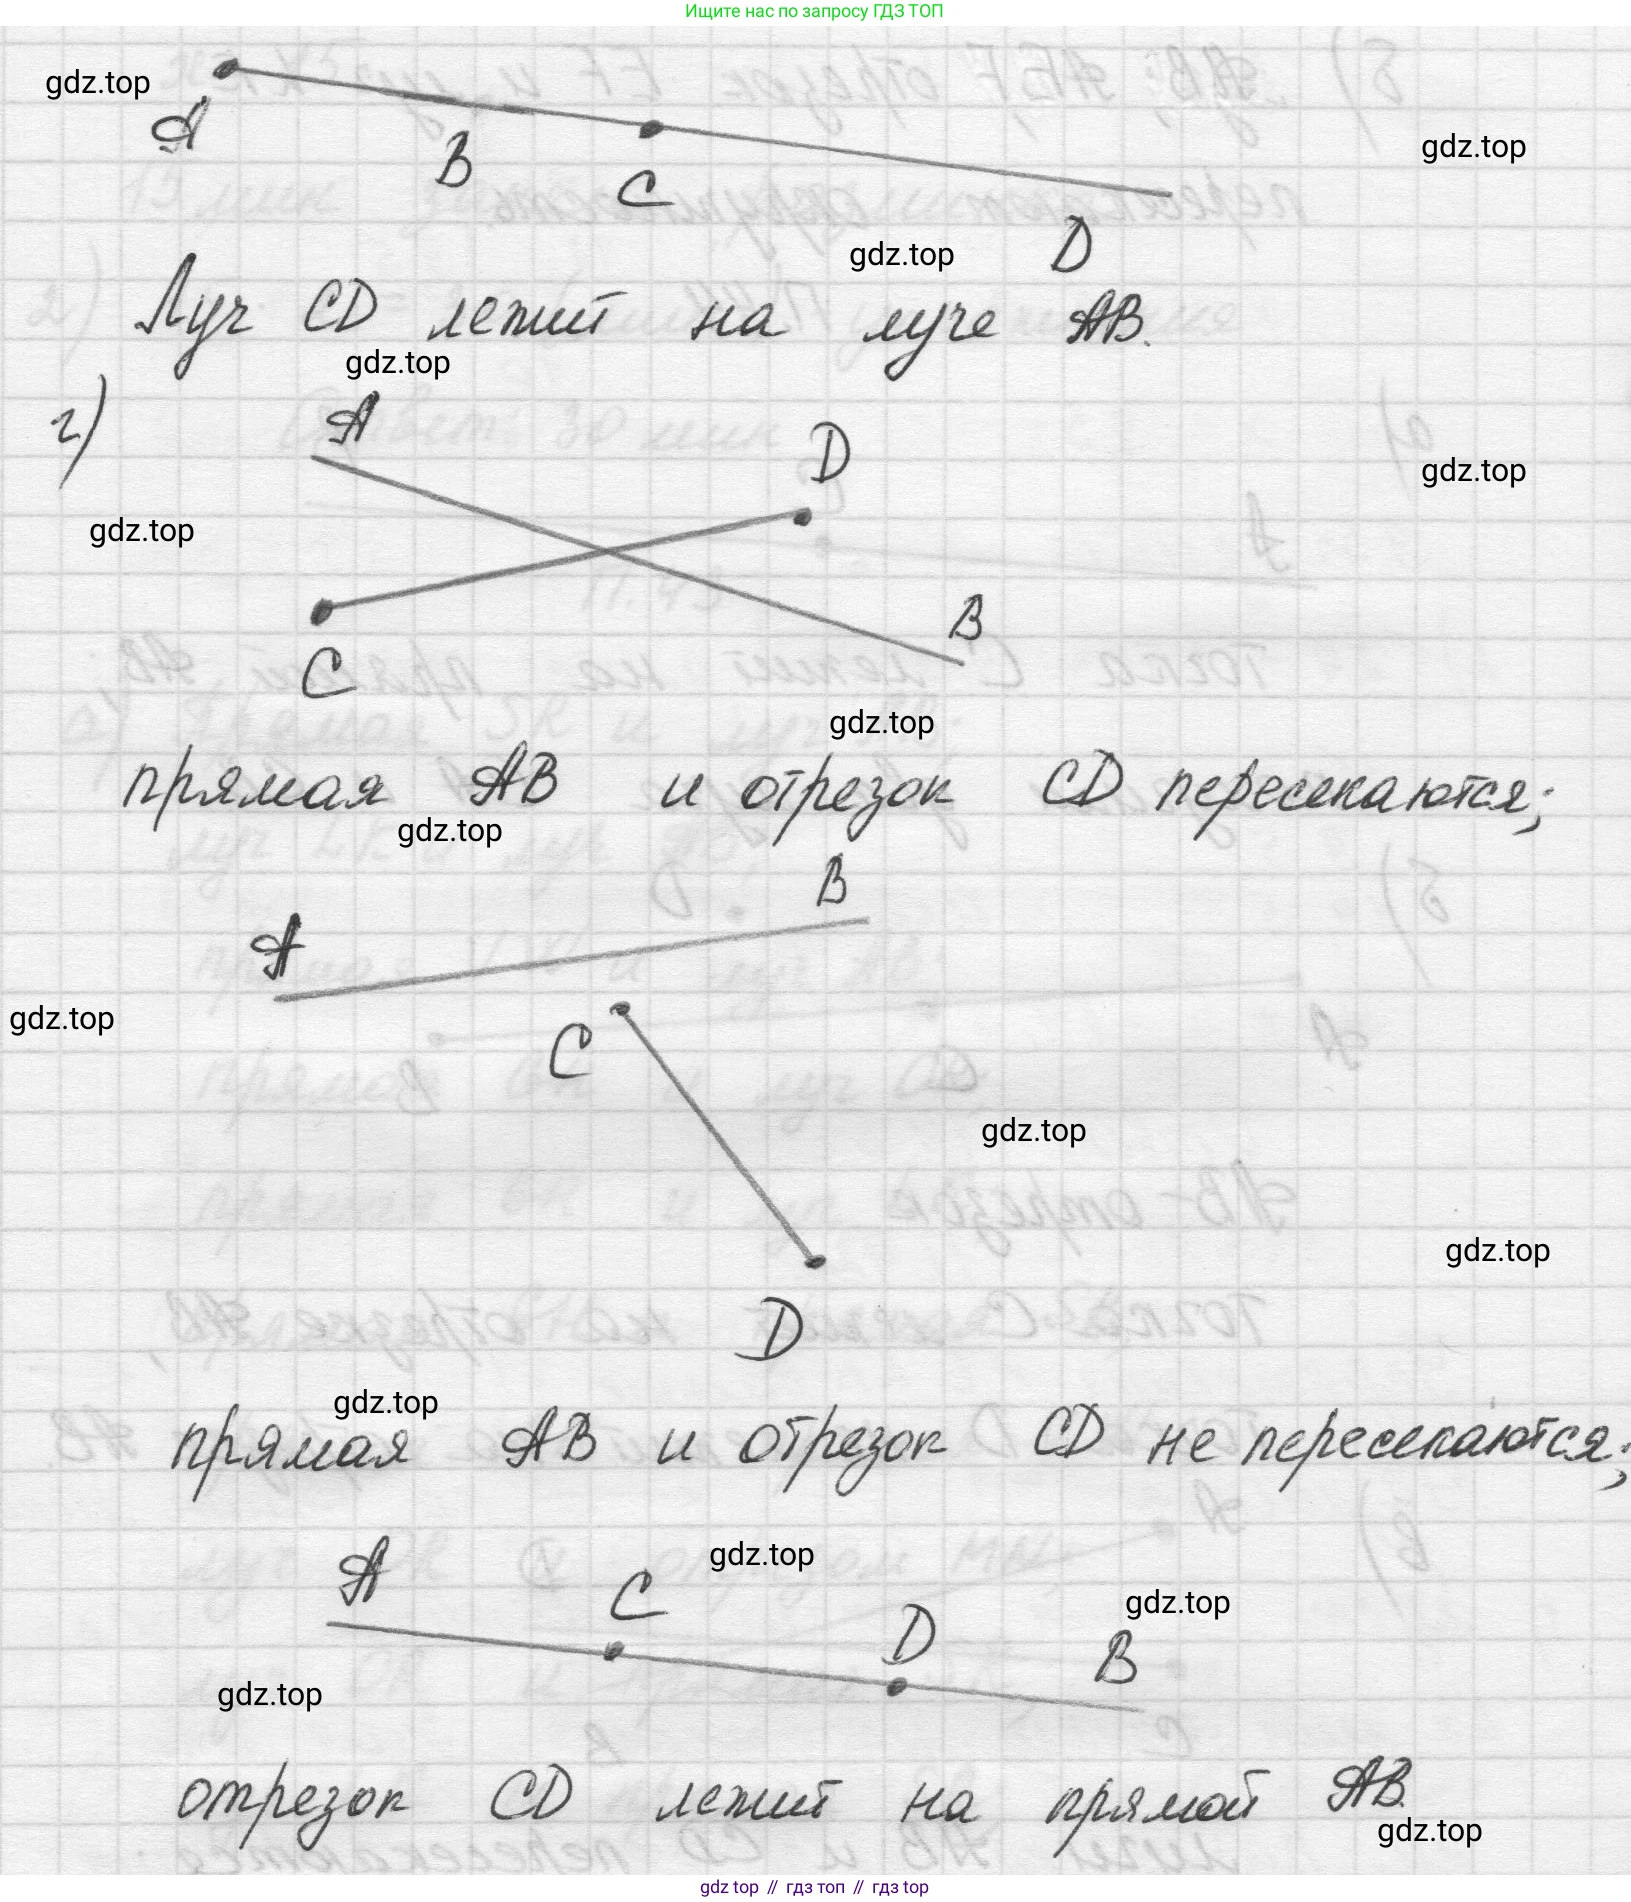 Ищите нас по запросу ГДЗ ТОП
gdz.top
A
B
C
gdz.top
D
gdz.top
Луч CD лежит на луче AB.
gdz.top
г)
A
D
gdz.top
gdz.top
B
C
gdz.top
прямая AB и отрезок CD пересекаются;
gdz.top
B
A
gdz.top
C
gdz.top
gdz.top
D
gdz.top
прямая AB и отрезок CD не пересекаются;
gdz.top
A
C
gdz.top
D
B
gdz.top
отрезок CD лежит на прямой AB.
gdz.top
gdz top // гдз топ // гдз top